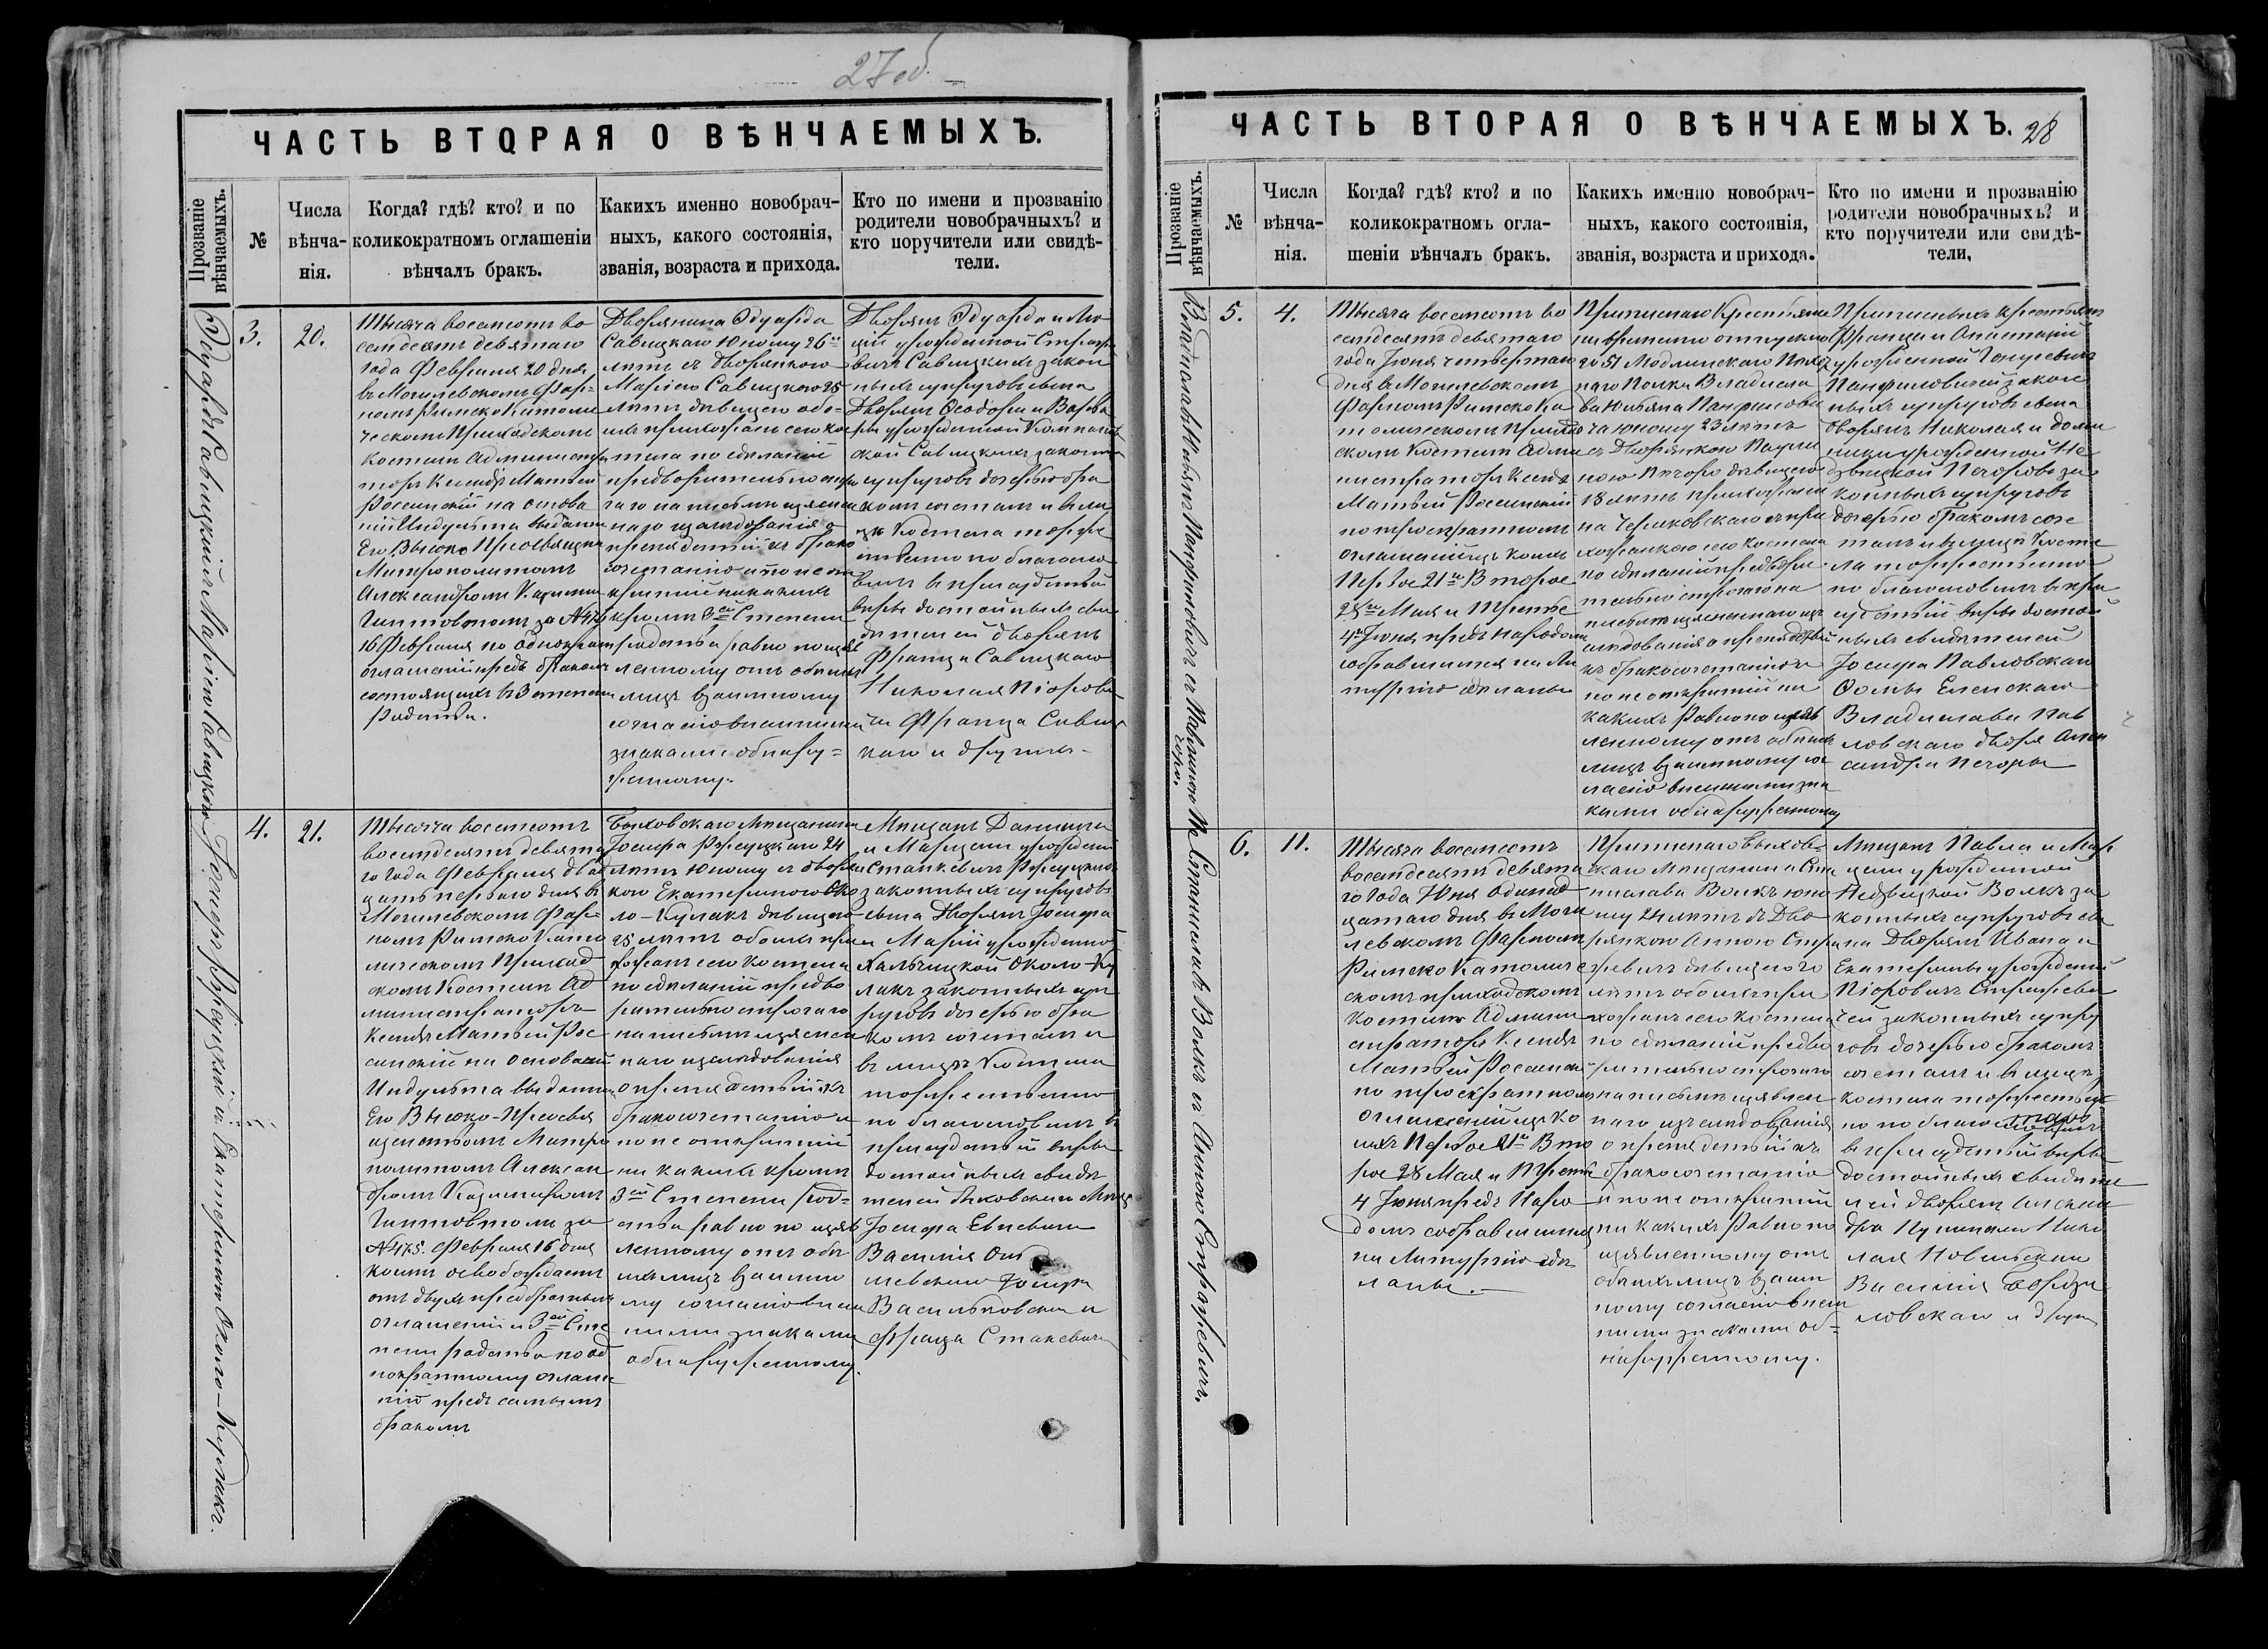 27 об.
ЧАСТЬ ВТОРАЯ О ВѢНЧАЕМЫХЪ.
Прозваніе вѣнчаемыхъ.
№
Числа вѣнча-нія.
Когда? гдѣ? кто? и по
коликократномъ оглашеніи
вѣнчалъ бракъ.
Какихъ именно новобрач-
ныхъ, какого состоянія,
званія, возраста и прихода.
Кто по имени и прозванію
родители новобрачныхъ? и
кто поручители или свидѣ-
тели.
Эдуардъ Савицкій съ Маріею Савицкою
3.
20.
Тысяча восемсотъ во
семдесятъ девятаго
года Февраля 20 дня
въ Могилевскомъ Фар-
номъ Римско Католи
ческомъ Приходскомъ
Костелѣ Администра
торъ Ксендзъ Матвей
Россинскій на основа
ніи Индульта выданн
Его Высоко Преосвящен
Митрополитомъ
Александромъ Казимир
Гинтовтомъ за №
16 Февраля по однократ
оглашеніи предъ бракомъ
состоящихъ въ 3 степени
Родства.
Дворянина Эдуарда
Савицкаго юношу 26
лѣтъ съ Дворянкою
Маріею Савицкою 25
лѣтъ дѣвицею обо-
ихъ прихожанъ сего ко
стела по сдѣланіи
предварительно стро
гаго на письмѣ изъясне
наго изслѣдованія о
препядствіи къ брако
сочетанію и по не от
крытіи никакихъ
кромѣ 3ей Степени
родства равно по изъяв
ленному отъ обоихъ
лицъ взаимному
согласію внешними
знаками обнару-
женному.
Дворянъ Эдуарда и Лю
ціи урожденной Стра
вичъ Савицкихъ закон
ныхъ супруговъ сына
Дворянъ Ѳеодора и Варва
ры урожденной
ской Савицкихъ законны
супруговъ дочерью бра
комъ сочеталъ и въ ли
цѣ Костела торже
ственно по благосло
вилъ въ присудствіи
вѣры достойныхъ сви
дѣтелей дворянъ
Франца Савицкаго
Николая Піорове
ча Франца Савиц
каго и другихъ.
Іосифъ Ржецицкій съ Екатериною Около-Кулакъ.
4.
21.
Тысяча восемсотъ
восемдесятъ девята
го года Февраля двад
цать перваго дня въ
Могилевскомъ Фар-
номъ Римско Като
лическомъ Приход
скомъ Костелѣ Ад
министраторъ
Ксендзъ Матвей Рос
синскій на основаніи
Индульта выданна
Его Высоко-Преосвя
щенствомъ Митро
политомъ Алексан
дромъ Казимиромъ
Гинтовтомъ за
№ 475. Февраля 16 дня
коимъ освобождаетъ
отъ двухъ предбрачныхъ
оглашеній и 3ей Сте
пени родства по од
нократному оглаше
нію предъ самымъ
бракомъ
Быховскаго Мещанина
Іосифа 24
лѣтъ юношу съ дворян
кою Екатериною Око
ло-Кулакъ дѣвицею
25 лѣтъ обоихъ при
хожанъ сего костела
по сдѣланіи предва
рительно строгаго
на письмѣ изъяснен
наго изслѣдованія
о препядствіи къ
бракосочетанію и
по не открытіи
ни какихъ кромѣ
3ей Степени род-
ства равно по изъяв
ленному отъ обо
ихъ лицъ взаимно
му согласію внеш
ними знаками
обнаруженному.
Мещанъ Даніила
и Марцели урожден
Станкевичъ
законныхъ супруговъ
сына Дворянъ Іосифа
и Маріи урожденной
Хальчицкой Около-Ку
лакъ законныхъ суп
руговъ дочерью бра
комъ сочеталъ и
въ лицѣ Костела
торжественно
по благословилъ въ
присудствіи вѣры
достойныхъ свидѣ
телей Быховскихъ Мещ
Іосифа
Василія
Іосифа
Васильковскаго и
Франца Станкевича
ЧАСТЬ ВТОРАЯ О ВѢНЧАЕМЫХЪ.
28
Прозваніе вѣнчаемыхъ.
№
Числа вѣнча-нія.
Когда? гдѣ? кто? и по
коликократномъ огла-
шеніи вѣнчалъ бракъ.
Какихъ именно новобрач-
ныхъ, какого состоянія,
званія, возраста и прихода.
Кто по имени и прозванію
родители новобрачныхъ? и
кто поручители или свидѣ-
тели.
Владиславъ Юльянъ Панфиловичъ съ Павлиною Пе
чоро.
5.
4.
Тысяча восемсотъ во
семдесятъ девятаго
года Іюня четвертаго
дня въ Могилевскомъ
Фарномъ Римско Ка
толическомъ Приход
скомъ Костелѣ Адми
нистраторъ Ксендзъ
Матвей Россинскій
по троекратномъ
оглашеніи изъ коихъ
Первое 21го Второе
28го Мая и Третье
4го Іюня предъ народомъ
собравшимся на Ли
тургію сдѣланы
Приписнаго Крестьяни
на временно отпускна
го 51 Модлинскаго Пехо
наго Полка Владисла
ва Юльяна Панфилови
ча юношу 23 лѣтъ
съ Дворянкою Павли
ною Печоро дѣвицею
18 лѣтъ прихожани
на Чериковскаго съ при
хожанкою сего Костела
по сдѣланіи предвари
тельно строгаго на
письмѣ изъясненнаго из
слѣдованія о препядствіи
къ бракосочетанію и
по не открытіи ни
какихъ Равно по изъяв
ленному отъ обоихъ
лицъ взаимному со
гласію внешними зна
ками обнаруженному
Приписныхъ крестьянъ
Франца и Анастасіи
урожденной Гонусевичъ
Панфиловичей закон
ныхъ супруговъ сына
дворянъ Николая и Доми
ники урожденной Не
дзвецкой Печоровъ за
конныхъ супруговъ
дочерью бракомъ соче
талъ и въ лицѣ Косте
ла торжественно
по благословилъ въ при
судствіи вѣры достой
ныхъ свидѣтелей
Іосифа Павловскаго
Ѳомы Еленскаго
Владислава Пав
ловскаго дворя Алек
сандра Печоры
Станиславъ Волкъ съ Анною Стражевичъ.
6.
11.
Тысяча восемсотъ
восемдесятъ девята
го года Іюня одинад
цатаго дня въ Моги
левскомъ Фарномъ
Римско Католиче
скомъ приходскомъ
Костелѣ Админи
страторъ Ксендзъ
Матвей Россинскій
по троекратномъ
оглашеніи изъ ко
ихъ Первое 21го Вто
рое 28 Мая и Третье
4 Іюня предъ Наро
домъ собравшимся
на Литургію сдѣ
ланы.
Приписнаго Быхов-
скаго Мещанина Ста
нислава Волкъ юно
шу 24 лѣтъ съ Дво
рянкою Анною Стра
жевичъ дѣвицею
лѣтъ обоихъ при
хожанъ сего Костела
по сдѣланіи предва
рительно строгаго
на письмѣ изъявлен
наго изъслѣдованія
о препядствіи къ
бракосочетанію
и по не открытіи
ни какихъ Равно по
изъявленному отъ
обоихъ лицъ взаим
ному согласію внеш
ними знаками об-
наруженному.
Мещанъ Павла и Мар
цели урожденной
Недзвецкой Волкъ за
конныхъ супруговъ сы
на Дворянъ Ивана и
Екатерины урожденной
Піоровичъ Стражеви
чей законныхъ супру
говъ дочерью бракомъ
сочеталъ и въ лицѣ
костела торжествен
но по благословилъ
въ присудствіи вѣры
достойныхъ свидѣте
лей дворянъ Алексан
дра Нико
лая
Василія
ловскаго и други